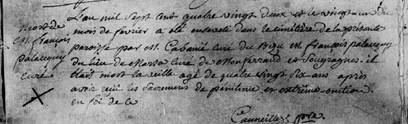 mort de
mr françois
palaucquy
curé
L'an mil sept cent quatre vingt deux et le vingt un du
mois de fevrier a été enseveli dans le cimetiere de la presente
paroisse par mr. Cabanié curé du Bézu mr françois palaucquy
du lieu de Massa curé de Montferrand et Fourtagnes. il
etait mort la veille agé de quatre vingt dix ans après
avoir reçu les sacremens de penitence et extreme onction.
en foi de ce
Cauneille ptre